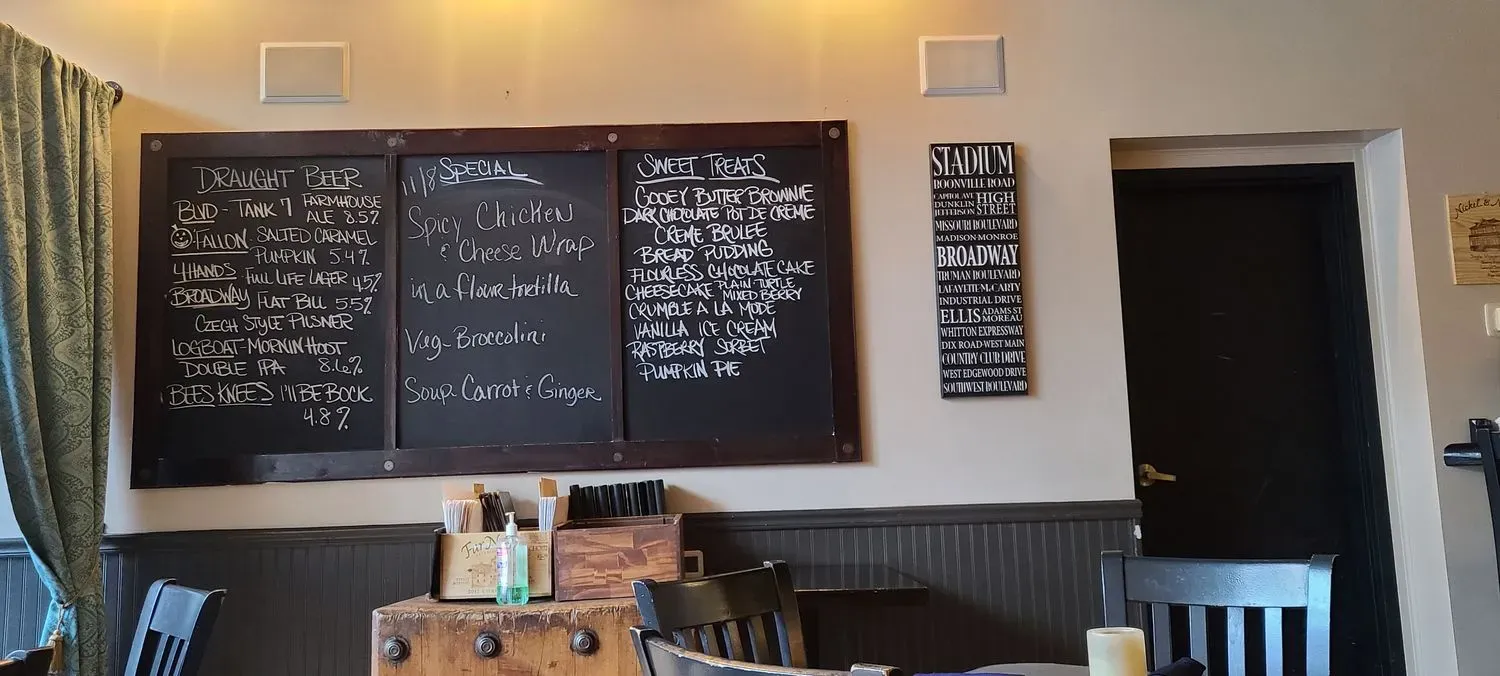 DRAUGHT BEER
BLVD - TANK 7 FARMHOUSE
ALE 8.5%
FALLON SALTED CARAMEL
PUMPKIN 5.4%
4 HANDS FULL LIFE LAGER 4.5%
BROADWAY FLAT BILL 5.5%
CZECH STYLE PILSNER
LOGBOAT - MORNIN HOOT
DOUBLE IPA 8.6%
BEES KNEES I'LL BE BOCK
4.8%
11/8 SPECIAL
Spicy Chicken
& Cheese Wrap
in a flour tortilla
Veg- Broccolini
Soup- Carrot & Ginger
SWEET TREATS
GOOEY BUTTER BROWNIE
DARK CHOCOLATE POT DE CREME
CREME BRULEE
BREAD PUDDING
FLOURLESS CHOCOLATE CAKE
CHEESECAKE PLAIN-TURTLE
MIXED BERRY
CRUMBLE A LA MODE
VANILLA ICE CREAM
RASPBERRY SORBET
PUMPKIN PIE
STADIUM
BOONVILLE ROAD
CAPITOL AVE
DUNKLIN HIGH
JEFFERSON STREET
MISSOURI BOULEVARD
MADISON-MONROE
BROADWAY
TRUMAN BOULEVARD
LAFAYETTE-McCARTY
INDUSTRIAL DRIVE
ELLIS ADAMS ST
MOREAU
WHITTON EXPRESSWAY
DIX ROAD-WEST MAIN
COUNTRY CLUB DRIVE
WEST EDGEWOOD DRIVE
SOUTHWEST BOULEVARD
Nickel &